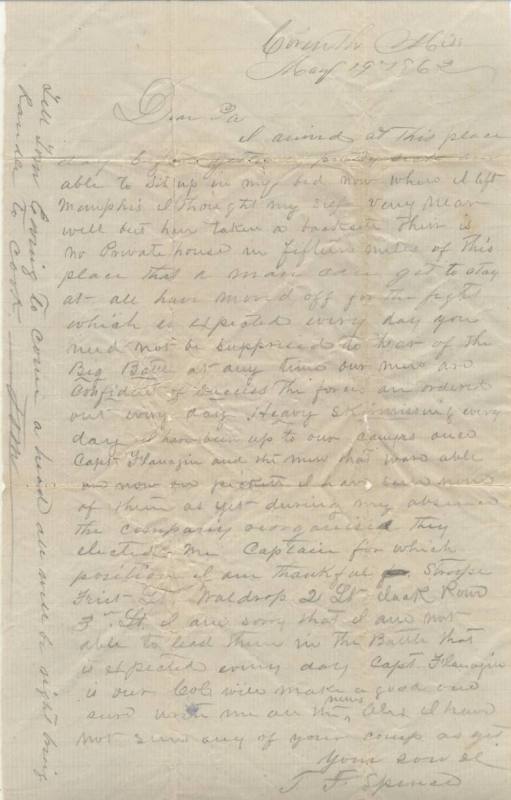 Corinth Miss
May 19th 1862
Dear Pa
I arived at this place
day before yesterday pretty sick am
able to Sit up in my bed now when I left
Memphis I thought my Self very near
well but hav taken a backsete thir is
no Private house in fifteen miles of this
place that a man can get to stay
at all have moved off for the fight
which is expected every day you
need not be suppresed to hear of the
Big Battle at any time our men are
Confident of Success the forces are ordered
out every day Heavy Skirmissing every
day I have been up to our camps once
Capt Flanagin and the men that ware able
are now on pickete I have seen none
of them as yet during my absence
the company reorganised they
elected me Captain for which
position I am thankful Stroope
First Lt Waldrop 2 Lt Jack Rowe
3rd Lt I am sorry that I am not
able to lead them in the Battle that
is expected every day Capt Flanagin
is our Col will make a good one
sure write me all the news I have
not seen any of your comp as yet
Your son &c
J F Spence
Tell Tom to come a head all will be right bring
to cook